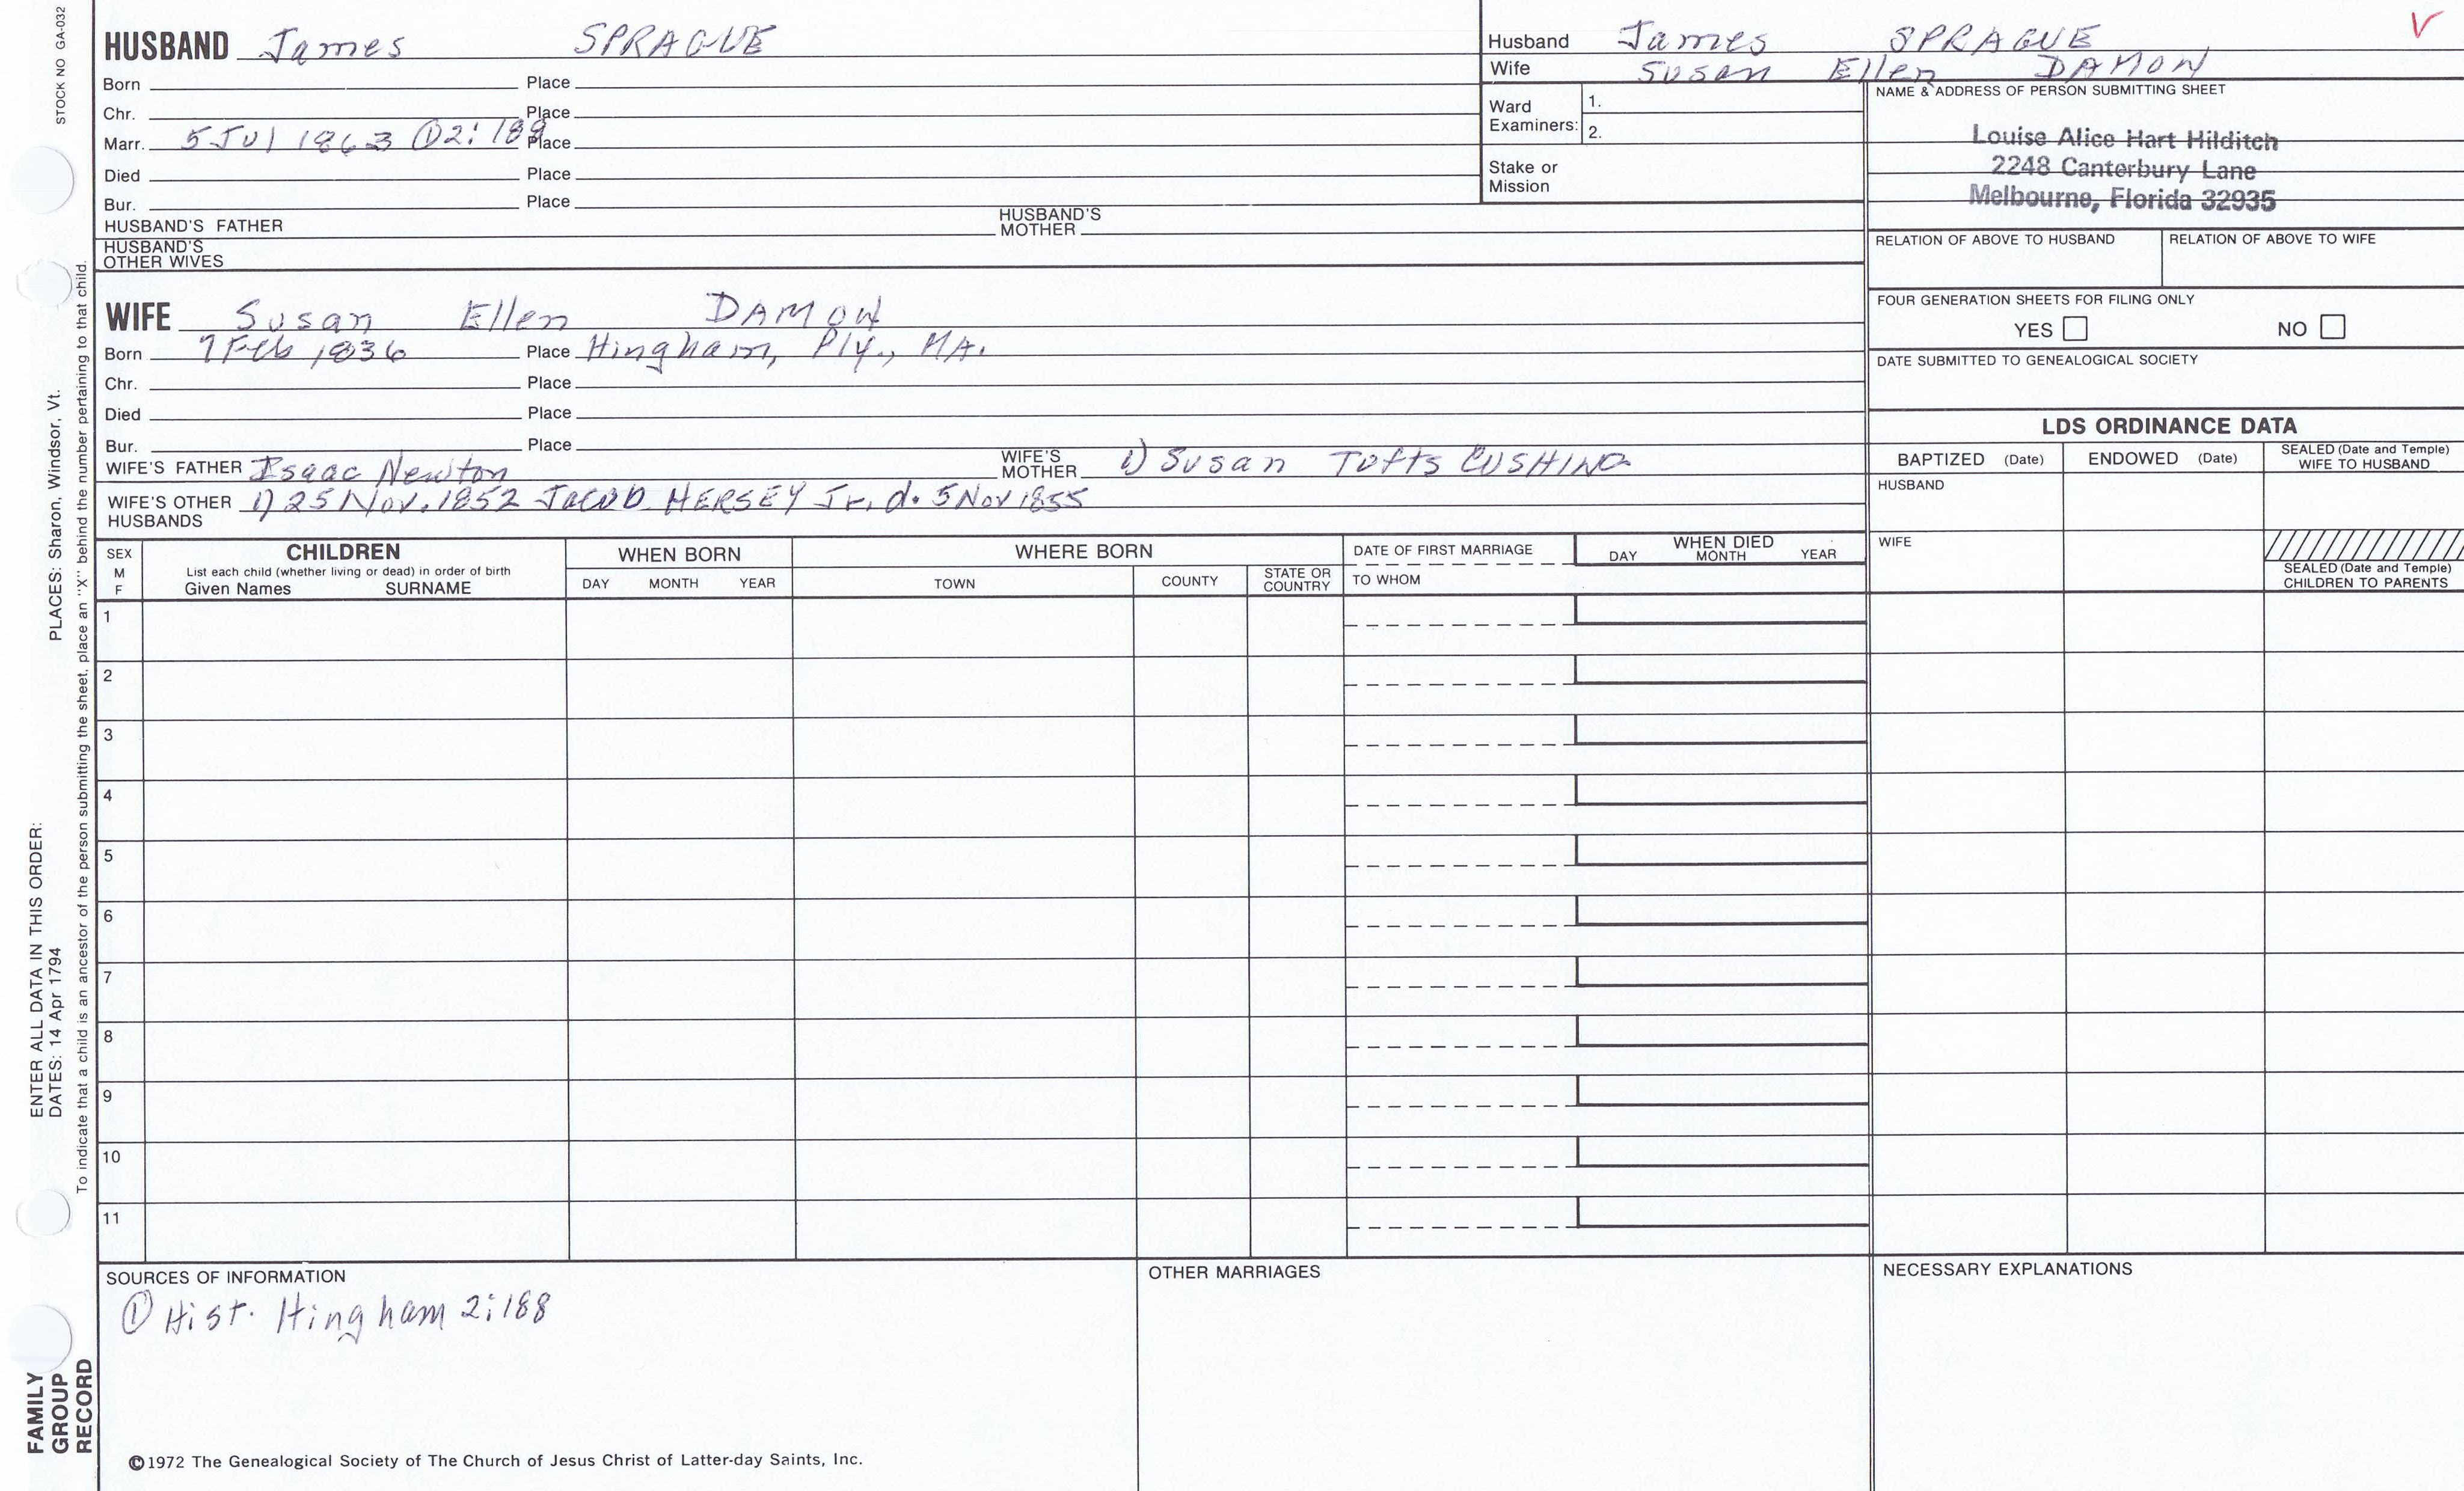 STOCK NO GA-032
PLACES: Sharon, Windsor, Vt.
ENTER ALL DATA IN THIS ORDER:
DATES: 14 Apr 1794
To indicate that a child is an ancestor of the person submitting the sheet, place an "X" behind the number pertaining to that child.
FAMILY
GROUP
RECORD
HUSBAND James SPRAGUE
Born Place
Chr. Place
Marr. 5 Jul 1863 ① 2:188 Place
Died Place
Bur. Place
HUSBAND'S FATHER HUSBAND'S MOTHER
HUSBAND'S OTHER WIVES
WIFE Susan Ellen DAMON
Born 7 Feb 1836 Place Hingham, Ply., MA.
Chr. Place
Died Place
Bur. Place
WIFE'S FATHER Isaac Newton WIFE'S MOTHER 1) Susan Tufts CUSHING
WIFE'S OTHER HUSBANDS 1) 25 Nov. 1852 Jacob HERSEY Jr. d. 5 Nov 1855
Husband James SPRAGUE V
Wife Susan Ellen DAMON
Ward Examiners: 1.
2.
Stake or Mission
NAME & ADDRESS OF PERSON SUBMITTING SHEET
Louise Alice Hart Hilditch
2248 Canterbury Lane
Melbourne, Florida 32935
RELATION OF ABOVE TO HUSBAND RELATION OF ABOVE TO WIFE
FOUR GENERATION SHEETS FOR FILING ONLY
YES NO
DATE SUBMITTED TO GENEALOGICAL SOCIETY
LDS ORDINANCE DATA
BAPTIZED (Date) ENDOWED (Date) SEALED (Date and Temple) WIFE TO HUSBAND
HUSBAND
WIFE
SEALED (Date and Temple)
CHILDREN TO PARENTS
SEX M F CHILDREN WHEN BORN WHERE BORN DATE OF FIRST MARRIAGE WHEN DIED
List each child (whether living or dead) in order of birth
Given Names SURNAME DAY MONTH YEAR TOWN COUNTY STATE OR COUNTRY TO WHOM DAY MONTH YEAR
1
2
3
4
5
6
7
8
9
10
11
SOURCES OF INFORMATION OTHER MARRIAGES NECESSARY EXPLANATIONS
① Hist. Hingham 2:188
©1972 The Genealogical Society of The Church of Jesus Christ of Latter-day Saints, Inc.